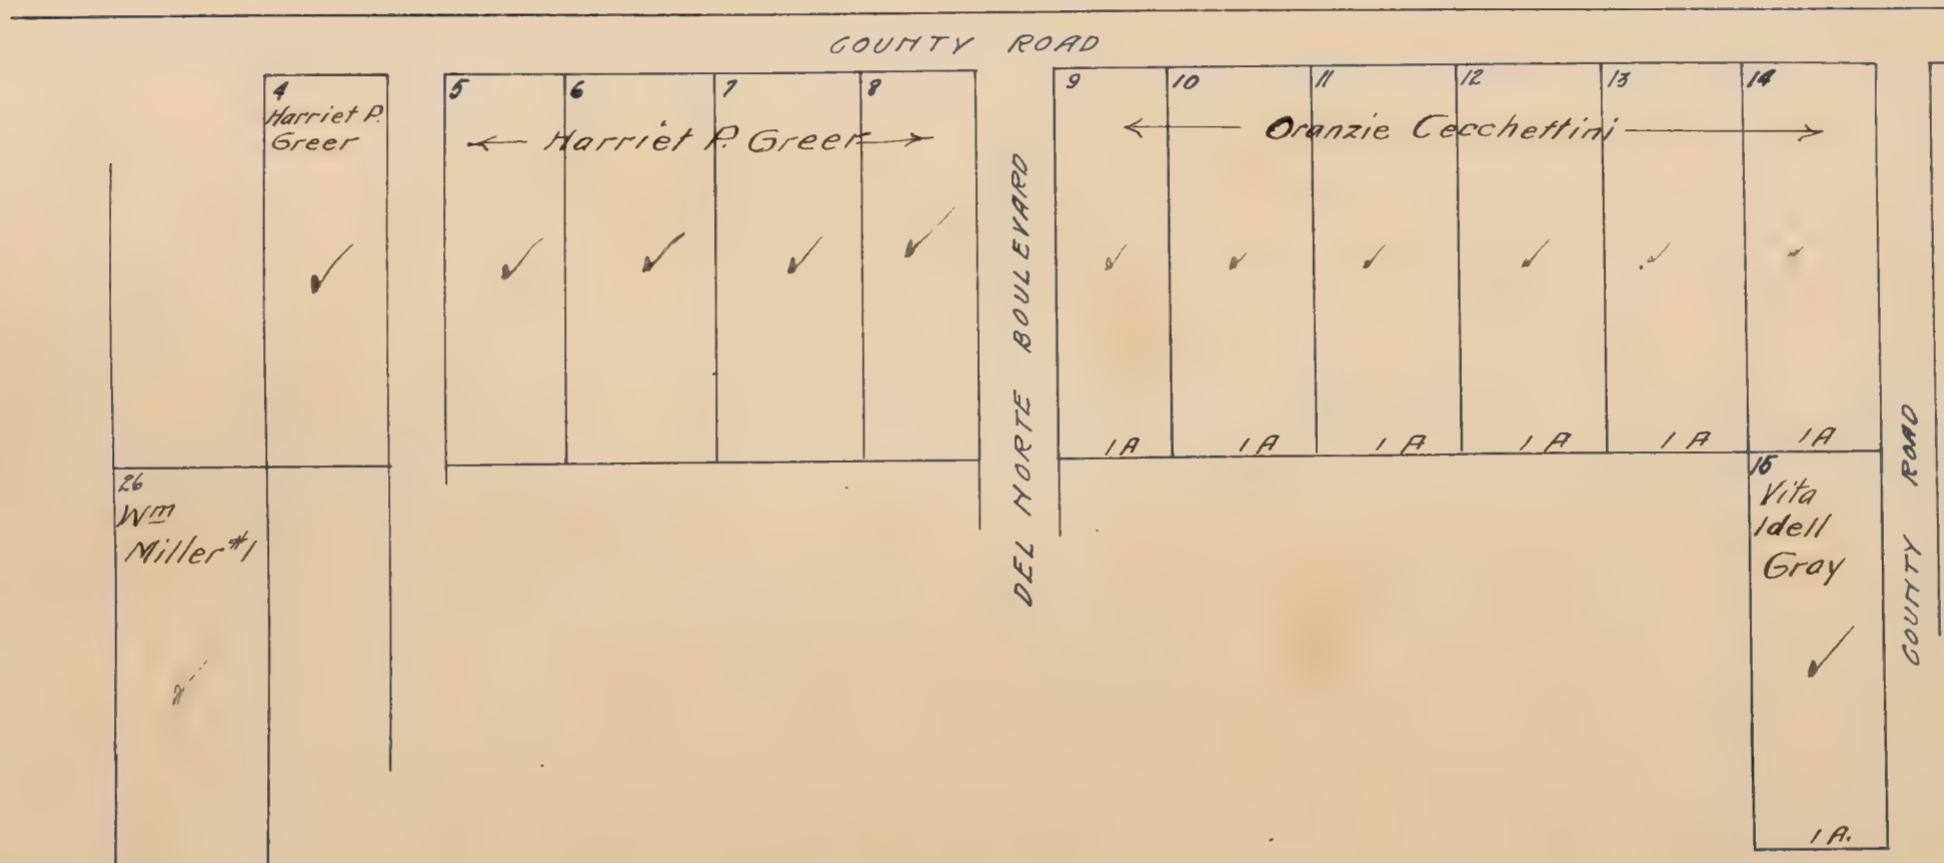 COUNTY ROAD
4
Harriet P.
Greer
5 6 7 8
Harriet P. Greer
DEL NORTE BOULEVARD
9 10 11 12 13 14
Oranzie Cecchettini
1 A 1 A 1 A 1 A 1 A 1 A
26
Wm
Miller #1
15
Vita
Idell
Gray
1 A.
COUNTY ROAD